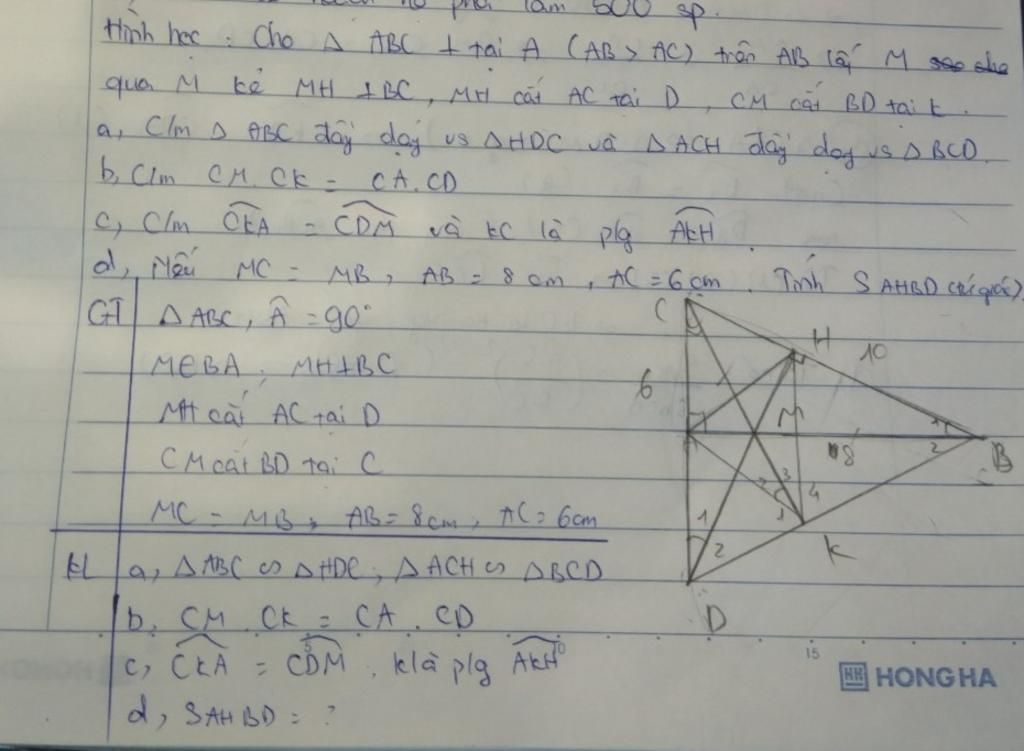 phải làm 500 sp.
Hình học: Cho Δ ABC ⊥ tại A (AB > AC) trên AB lấy M
qua M kẻ MH ⊥ BC, MH cắt AC tại D, CM cắt BD tại K.
a, C/m Δ ABC đầy dạy vs Δ HDC và Δ ACH đầy dạy vs Δ BCD.
b, C/m CM. CK = CA. CD
c, C/m CKA = CDM và KC là p/g AKH.
d, Nếu MC = MB, AB = 8 cm, AC = 6 cm. Tính S AHBD (tứ giác).
GT Δ ABC, Â = 90°
M∈BA, MH⊥BC
MH cắt AC tại D
CM cắt BD tại C
MC = MB, AB = 8cm, AC = 6cm
KL a, Δ ABC ∽ Δ HDC, Δ ACH ∽ Δ BCD
b, CM. CK = CA. CD
c, CKA = CDM, K là p/g AKH
d, SAHBD = ?
C
H
10
6
M
8
1
2
B
2
3
4
1
1
2
K
D
15
HH HONG HA